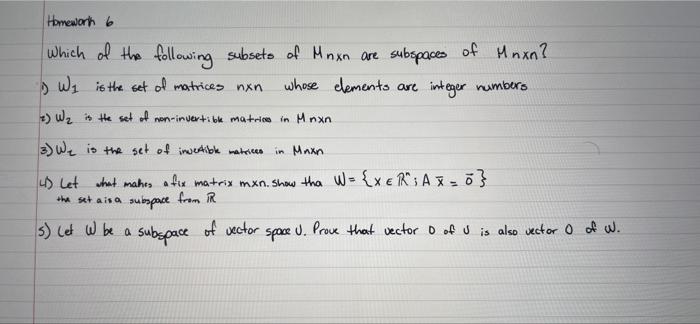 Homework 6
Which of the following subsets of Mnxn are subspaces of Mnxn?
1) W1 is the set of matrices nxn whose elements are integer numbers
2) W2 is the set of non-invertible matrices in Mnxn
3) W2 is the set of invertible matrices in Mnxn
4) Let what makes a fix matrix mxn. show tha W = {x ∈ Rⁿ; A x̄ = ō}
the set a is a subspace from R
5) Let W be a subspace of vector space U. Prove that vector 0 of U is also vector 0 of W.